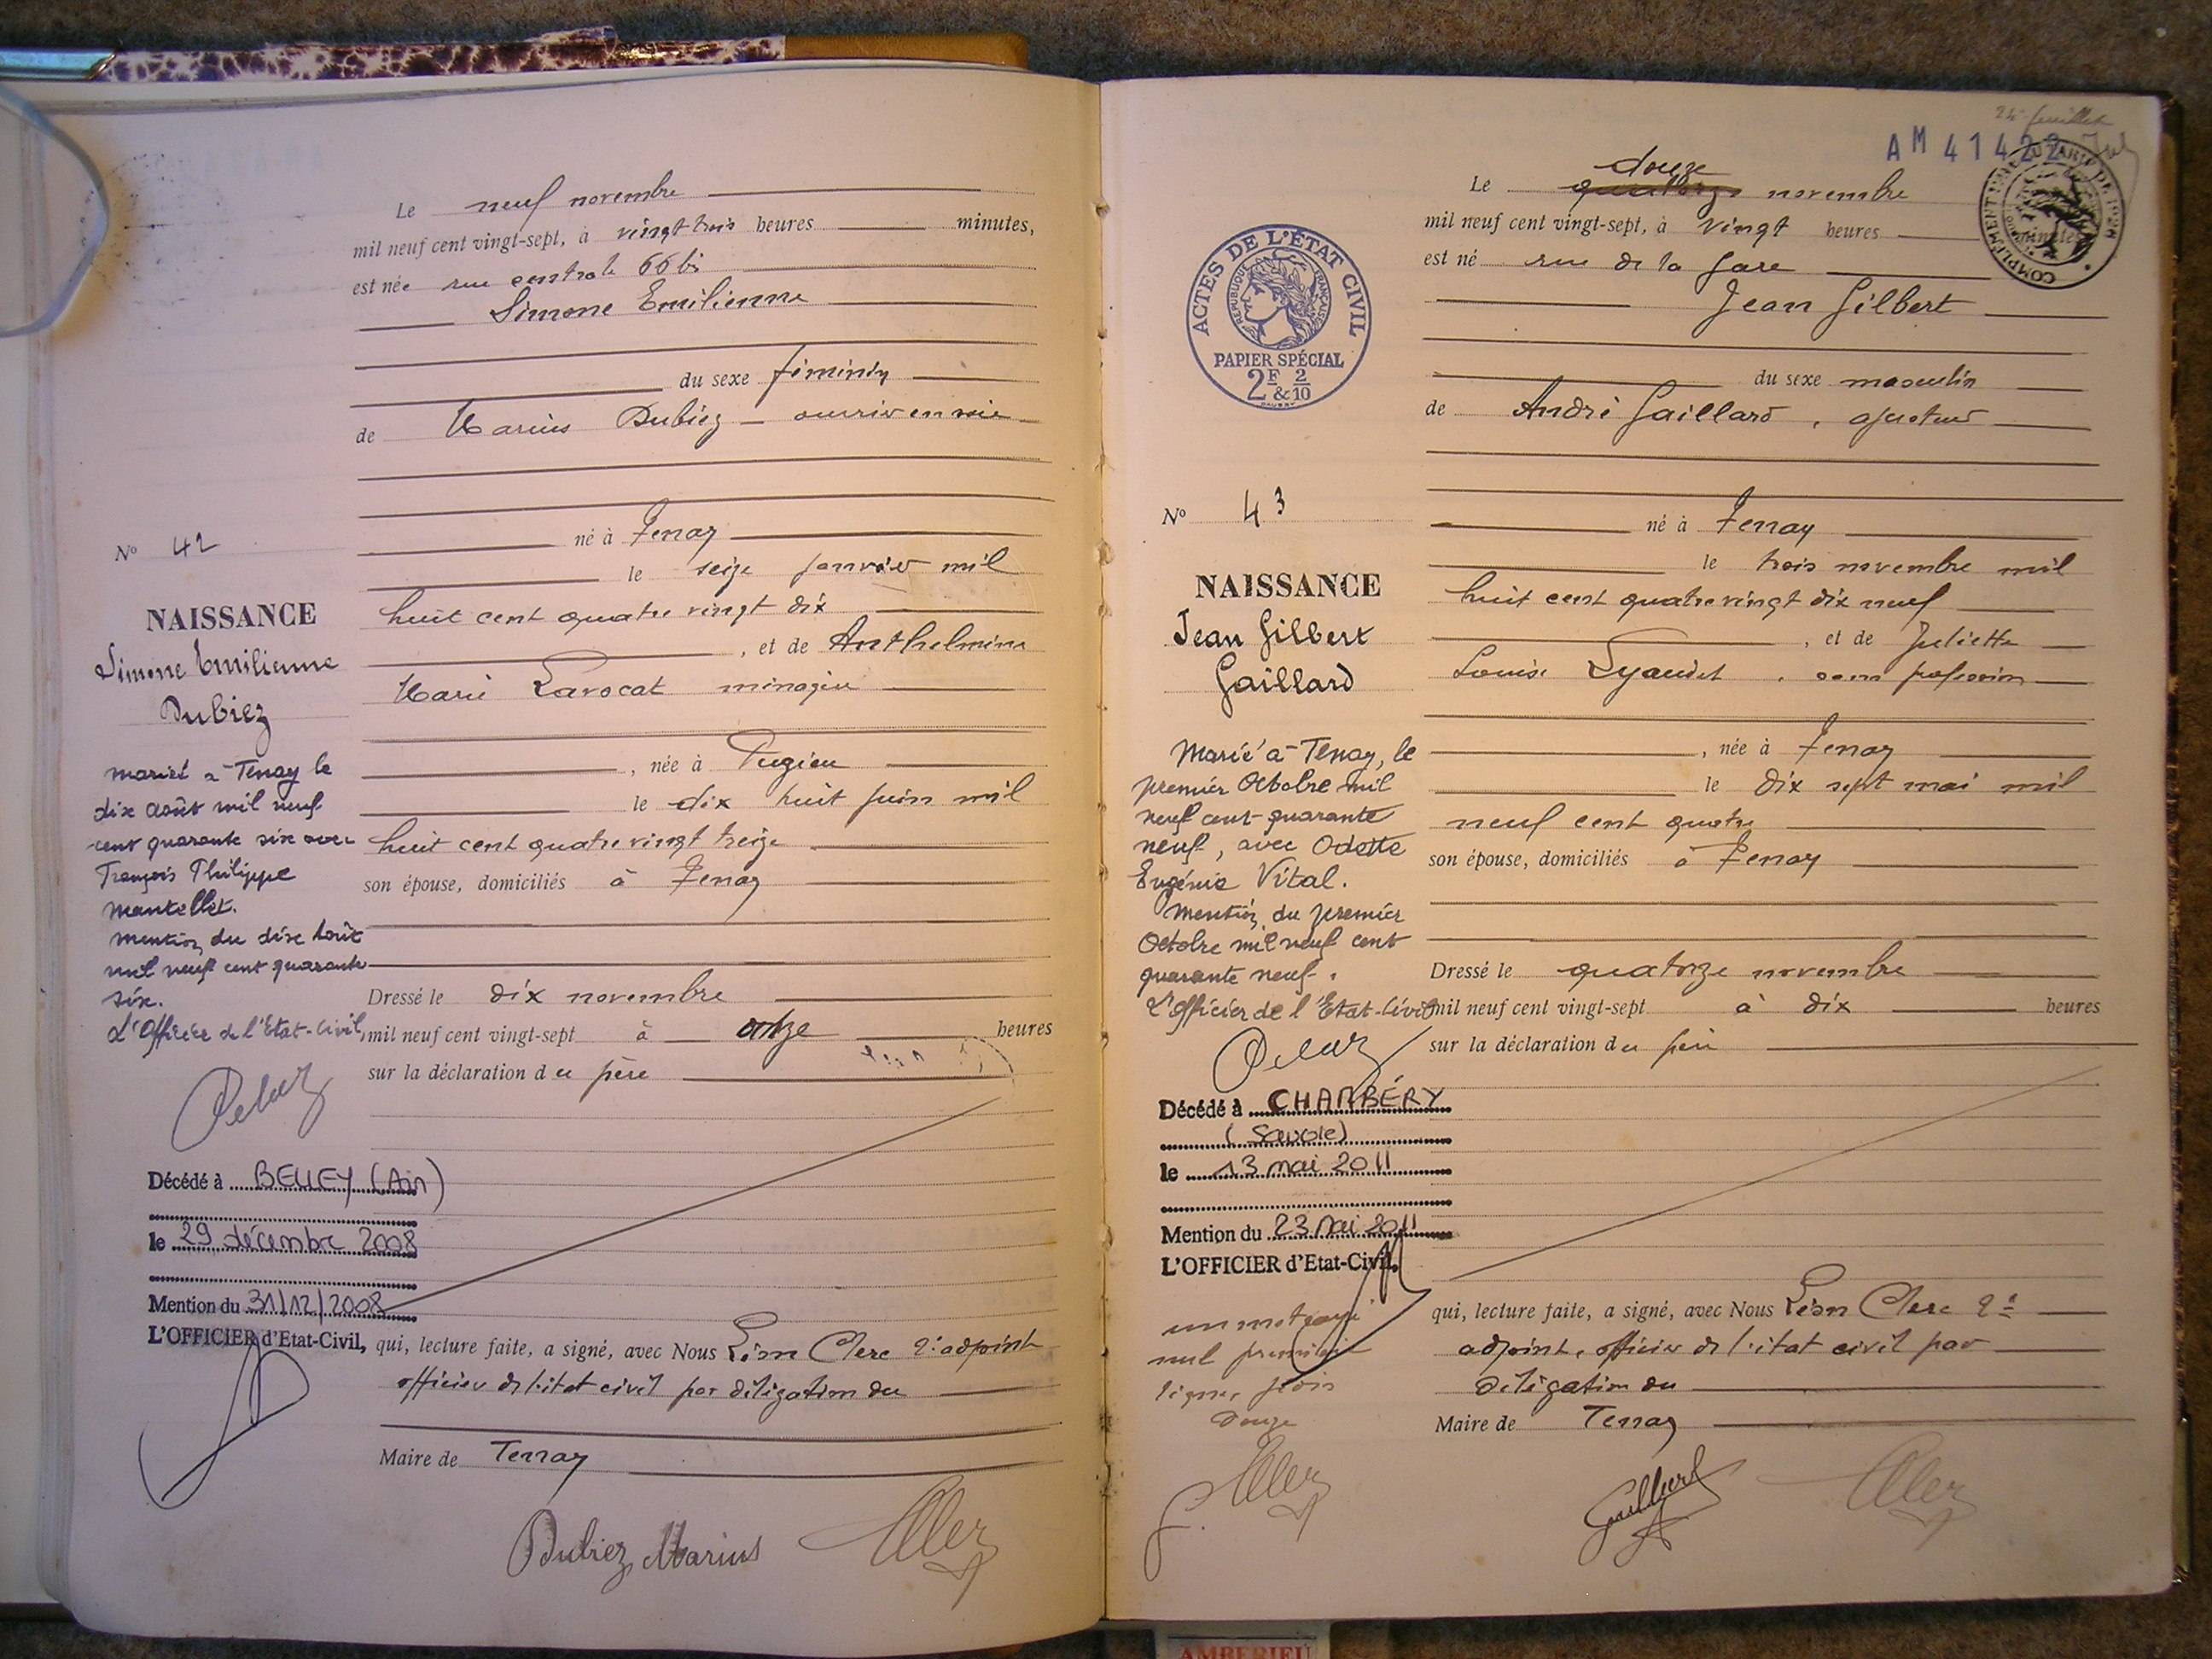 Le neuf novembre
mil neuf cent vingt-sept, à vingt trois heures minutes,
est née rue centrale 66 bis
Simone Emilienne
du sexe féminin
de Marius Dubiez ouvrier en soie
né à Tenay
le seize janvier mil
huit cent quatre vingt dix
, et de Anthelmine
Marie Lavocat ménagère
, née à Pugieu
le dix huit juin mil
huit cent quatre vingt treize
son épouse, domiciliés à Tenay
Dressé le dix novembre
mil neuf cent vingt-sept à onze heures
sur la déclaration du père
qui, lecture faite, a signé, avec Nous Léon Clerc 2e adjoint
officier de l'état civil par délégation du
Maire de Tenay
Dubiez Marius
No 42
NAISSANCE
Simone Emilienne
Dubiez
Mariée à Tenay le
dix août mil neuf
cent quarante six avec
François Philippe
Mantellet.
Mention du dix août
mil neuf cent quarante
six.
L'Officier de l'Etat-Civil,
Décédé à BELLEY (Ain)
le 29 décembre 2008
Mention du 31/12/2008
L'OFFICIER d'Etat-Civil,
24e feuillet
AM 41422
Le quatorze douze novembre
mil neuf cent vingt-sept, à vingt heures minutes
est né rue de la gare
Jean Gilbert
du sexe masculin
de André Gaillard, ajusteur
né à Tenay
le trois novembre mil
huit cent quatre vingt dix neuf
, et de Juliette
Louise Lyaudet, sans profession
, née à Tenay
le dix sept mai mil
neuf cent quatre
son épouse, domiciliés à Tenay
Dressé le quatorze novembre
mil neuf cent vingt-sept à dix heures
sur la déclaration du père
qui, lecture faite, a signé, avec Nous Léon Clerc 2e
adjoint, officier de l'état civil par
délégation du
Maire de Tenay
ACTES DE L'ÉTAT CIVIL
RÉPUBLIQUE FRANÇAISE
PAPIER SPÉCIAL
2F & 2/10
No 43
NAISSANCE
Jean Gilbert
Gaillard
Marié à Tenay, le
premier Octobre mil
neuf cent quarante
neuf, avec Odette
Eugénie Vital.
Mention du premier
Octobre mil neuf cent
quarante neuf.
L'Officier de l'Etat-Civil
Décédé à CHAMBÉRY
(Savoie)
le 13 mai 2011
Mention du 23 Mai 2011
L'OFFICIER d'Etat-Civil,
un mot rayé
nul première
ligne,
douze
AMBERIEU